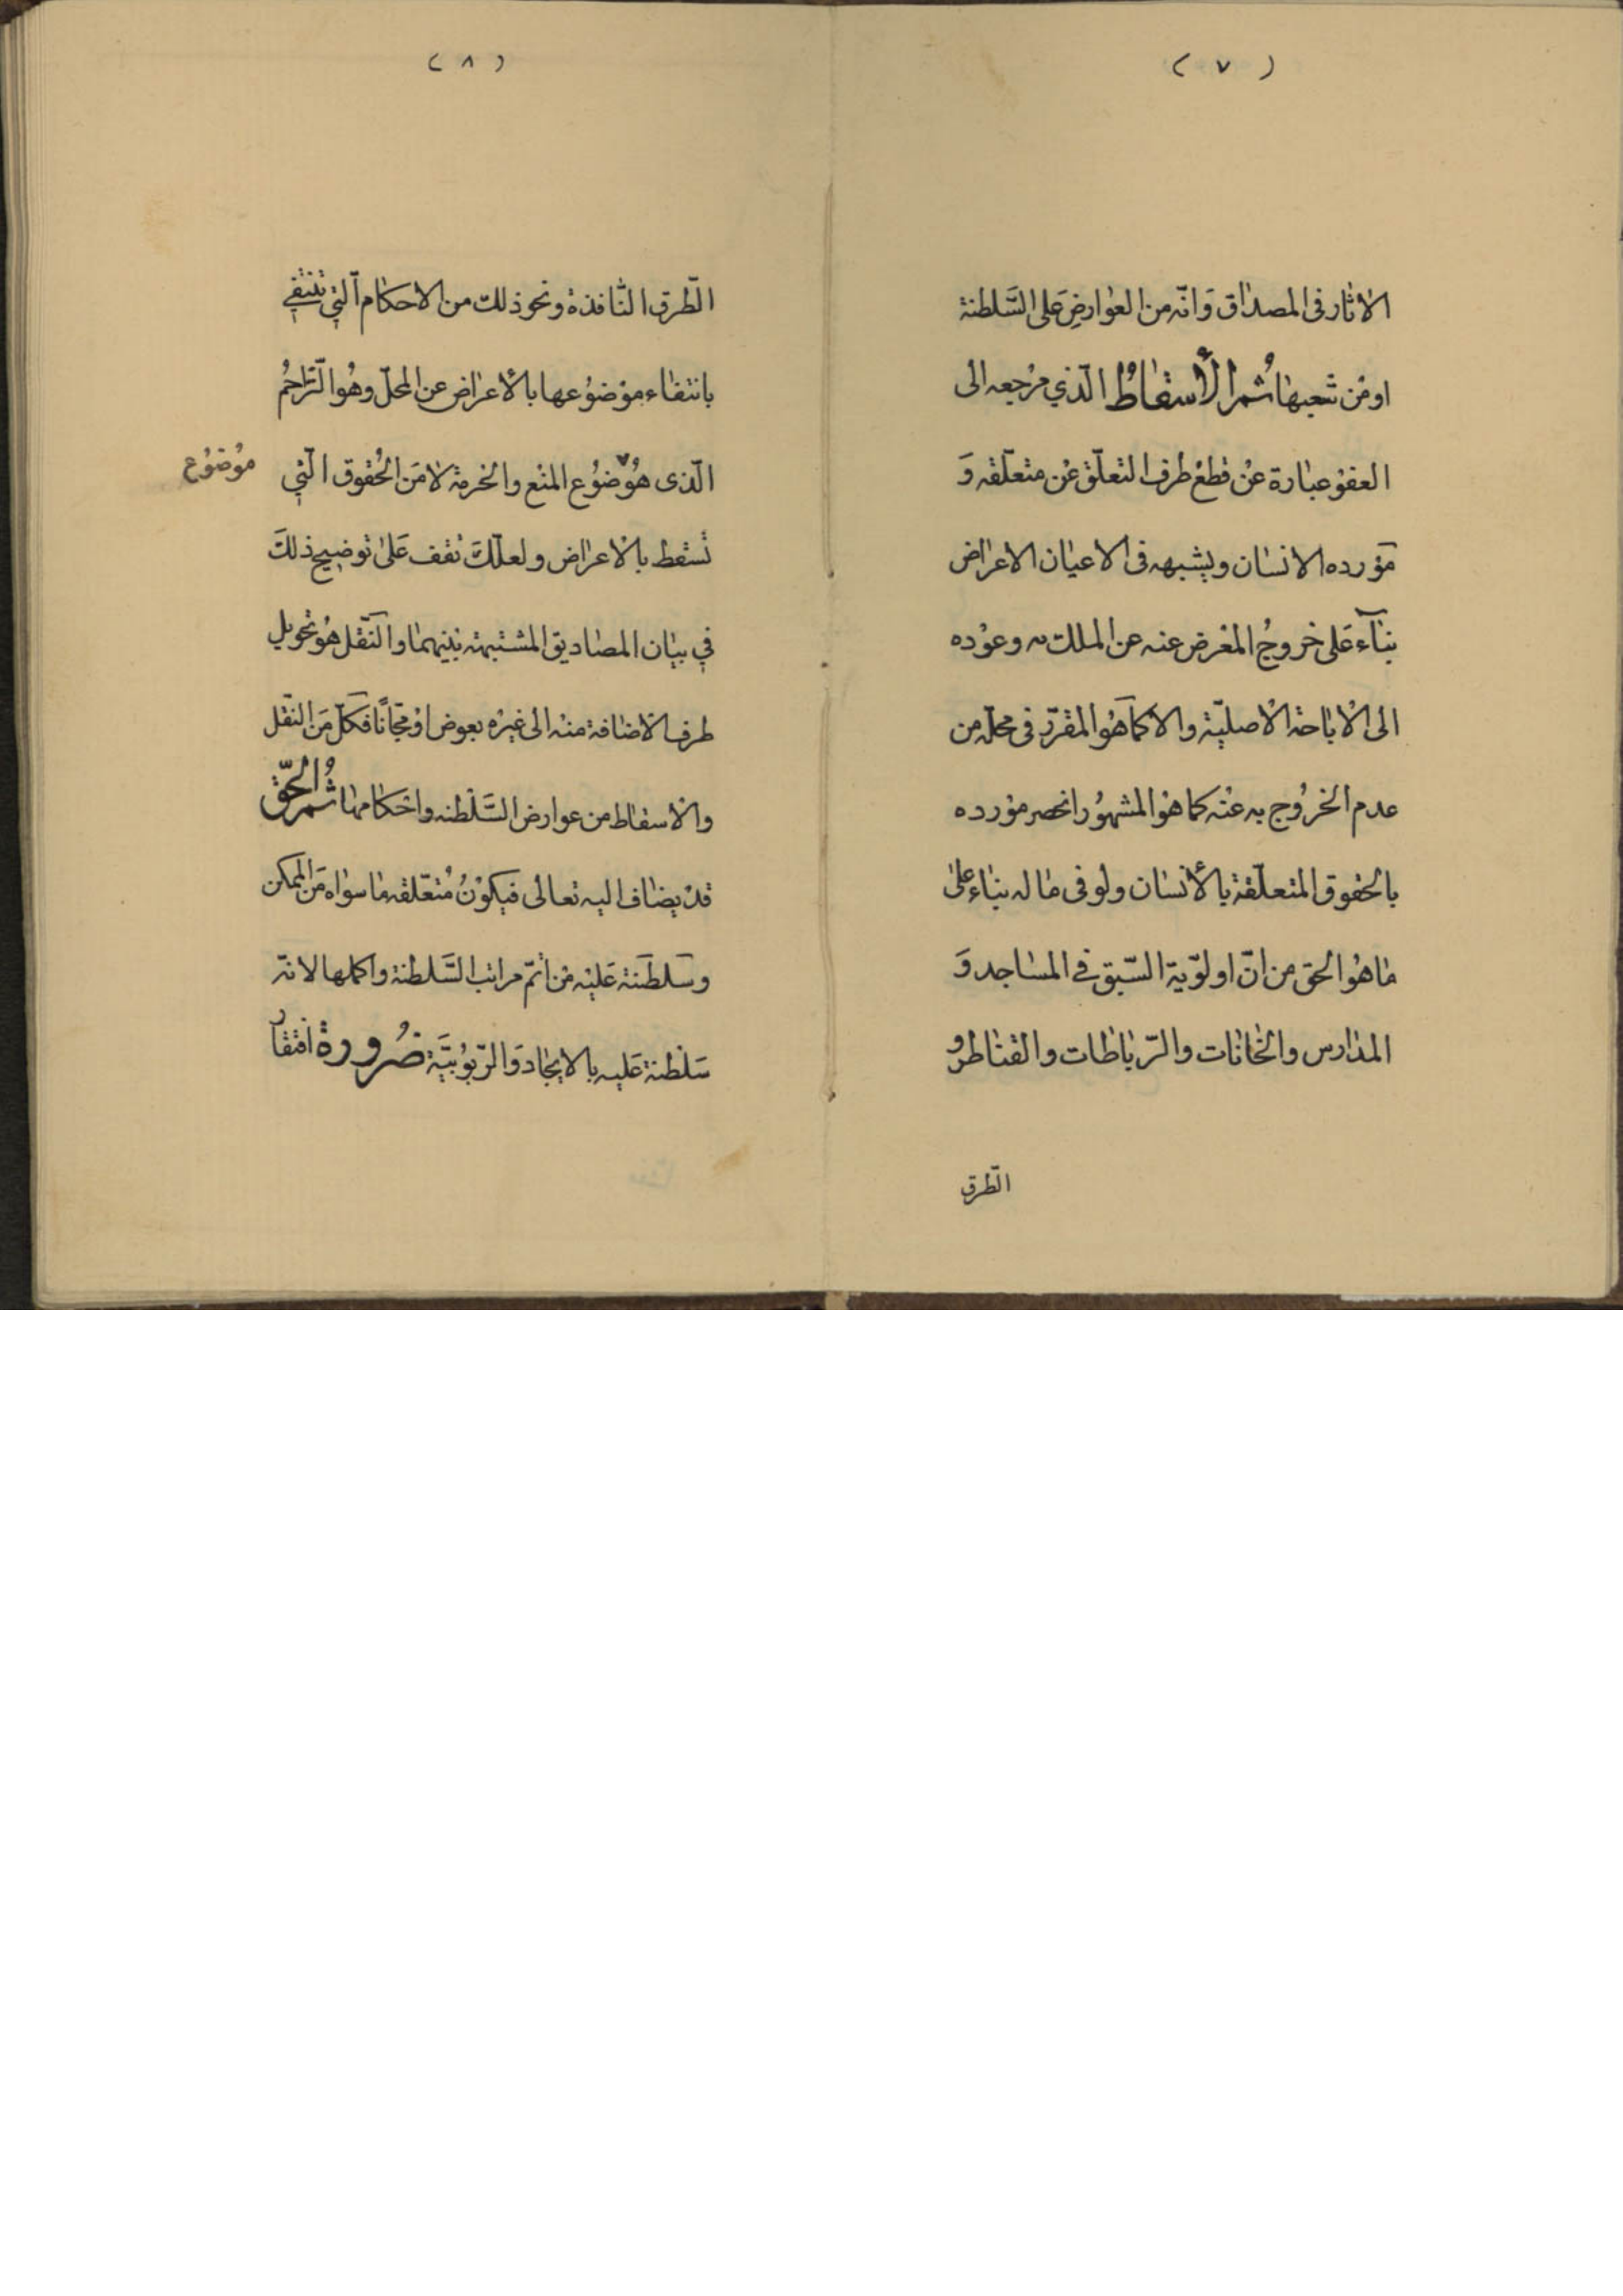 ( ٧ )
الاثار فى المصداق وَانّه من العوارضِ عَلى السَّلطنة
اومن شعبها ثُم الأسقاطُ الّذي مرجعه الى
العفو عبارة عنْ قطع طرف التعلّق عنْ متعلّقه وَ
موَرده الانسان ويشبهه فى الاعيان الاعراض
بنآء عَلى خروجُ المعرض عنه عن الملك وعوْده
الى الاباحة الاصليّة والا كما هَو المقرّر فى محلّه من
عدم الخروُج به عنْه كما هو المشهوُر انحصر مورده
بالحقوق المتعلّقة بالأنسان ولو فى ماله بناء على
ما هو الحق من انّ اولوّية السّبق في المساجد وَ
المدارس والخانات والرّباطات والقناطر و
الطّرق
( ٨ )
الطّرق النّافذة ونحو ذلك من الاحكام الّتي تنتفي
بانتفاء موضوُعها بالأعراض عن المحلّ وهُو التّزاحُم
الّذى هُو ضوُع المنع والحرمة لا منَ الحُقوق الّتي
موُضوُع
تسقط بالاعراض ولعلّكَ تقف عَلىٰ توضيح ذلكَ
في بيان المصاديق المشتبهة بينهما والنّقل هُو تحويل
طرف الاضافة منه الى غيره بعوض اوْ مجّانًا فكلّ منَ النّقل
والاسقاط من عوارض السَّلْطنه واحكامها ثُم الحّق
قدْ يضاف اليه تعالى فيكوْنُ مُتعلّقه ما سواه منَ الممكن
وسَلطَنة عَليْه منْ اتمّ مراتب السَّلطنة واكملها لانّه
سَلْطنة عَليه بالايجاد وَالرّبوُبيَّة ضُرورة افتقار